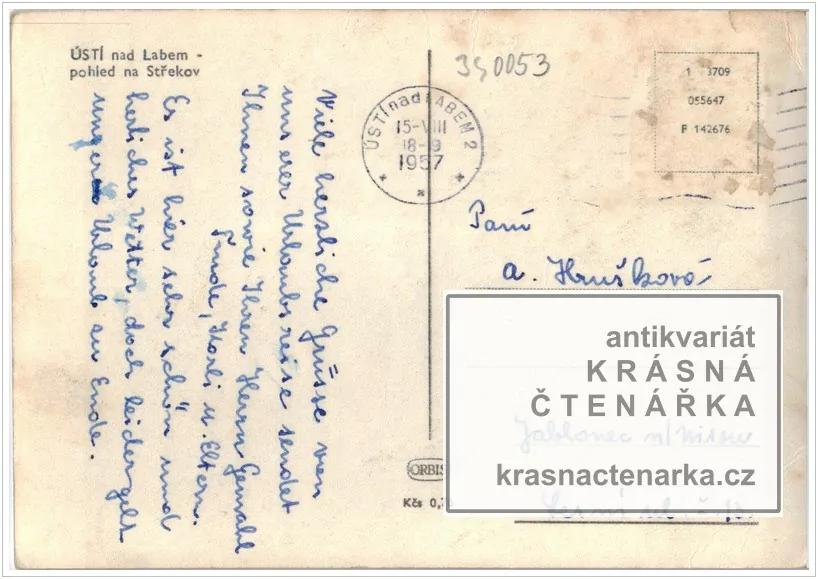 ÚSTÍ nad Labem -
pohled na Střekov
Viele herzliche Grüsse von
unserer Urlaubsreise sendet
Ihnen sowie Ihren Herrn Gemahl
Trude, Karli u. Eltern.
Es ist hier sehr schön und
herliches Wetter, doch leider geht
unser Urlaub zu Ende.
340053
ÚSTÍ nad LABEM 2
15-VIII
18-9
1957
1 3709
055647
F 142676
Paní
A. Hrušková
antikvariát
KRÁSNÁ
ČTENÁŘKA
Jablonec n/Nisou
krasnactenarka.cz
ORBIS
Kčs 0,